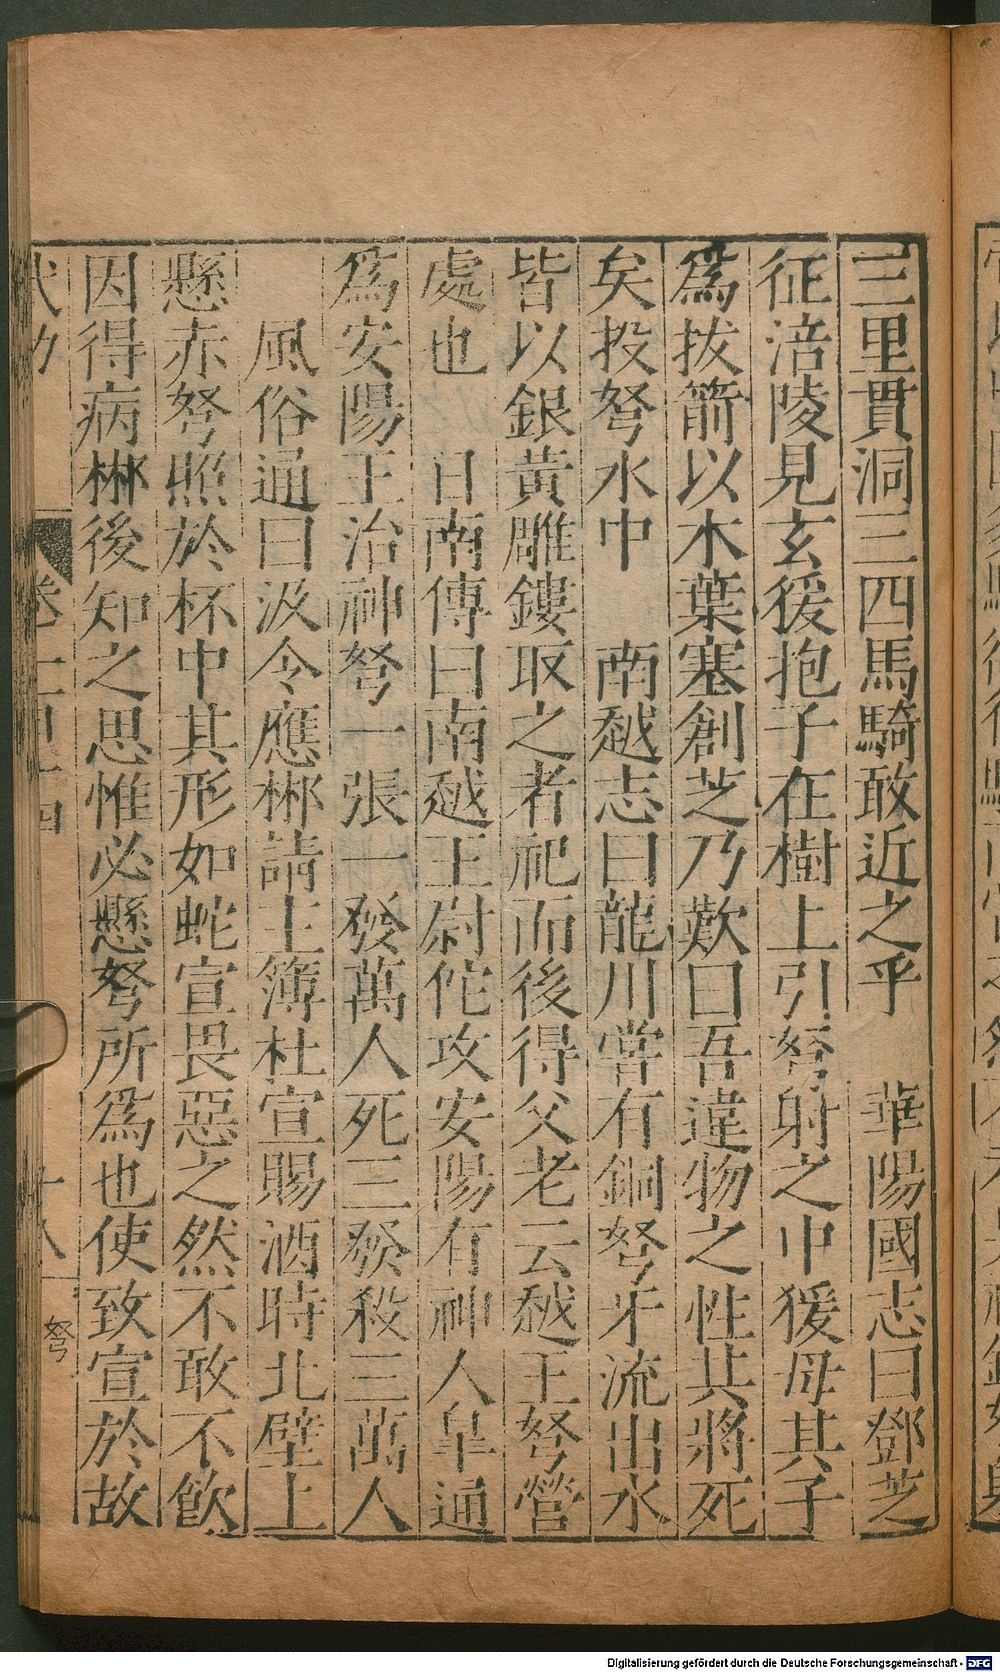 三里貫洞三四馬騎敢近之乎　華陽國志曰鄧芝
征涪陵見玄猨抱子在樹上引弩射之中猨母其子
爲拔箭以木葉塞創芝乃歎曰吾違物之性其將死
矣投弩水中　南越志曰龍川嘗有銅弩牙流出水
皆以銀黃雕鏤取之者祀而後得父老云越王弩營
處也　日南傳曰南越王尉佗攻安陽有神人皐通
爲安陽王治神弩一張一發萬人死三發殺三萬人
風俗通曰汲令應郴請主簿杜宣賜酒時北壁上
懸赤弩照於杯中其形如蛇宣畏惡之然不敢不飲
因得病郴後知之思惟必懸弩所爲也使致宣於故
弩
Digitalisierung gefördert durch die Deutsche Forschungsgemeinschaft - DFG